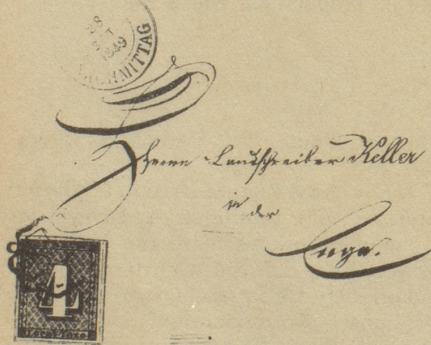 28
OCT
1849
NACHMITTAG
Herrn Landschreiber Keller
in
der
Enge.
4
Local-Taxe